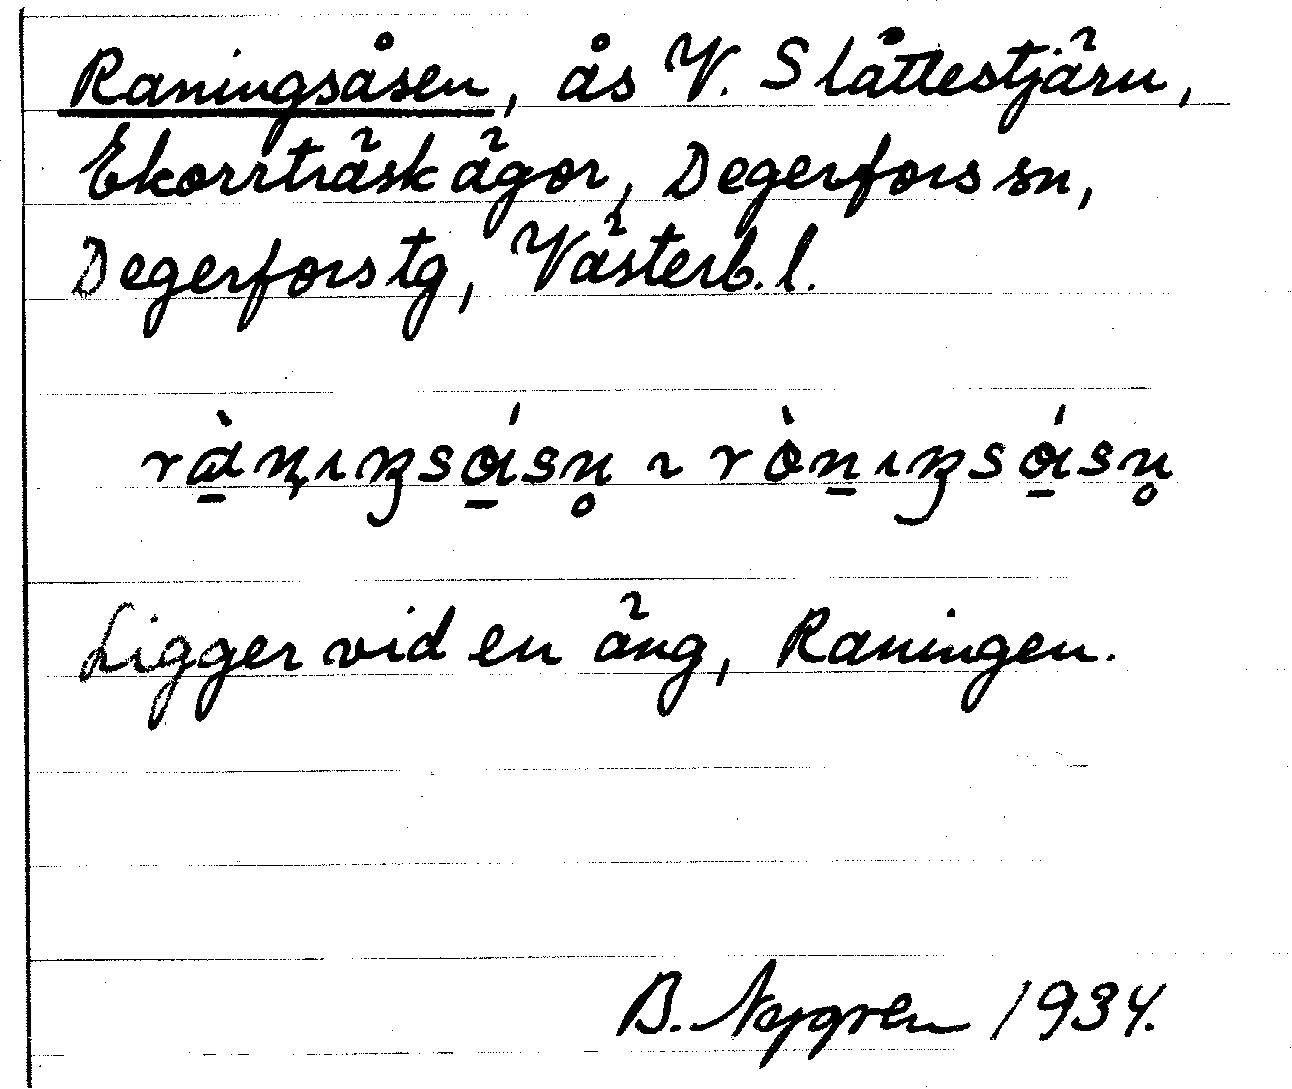 Raningsåsen, ås V. Slåttestjärn,
Ekorrträskägor, Degerfors sn,
Degerfors tg, Västerb. l.
Ligger vid en äng, Raningen.
B. Nygren 1934.